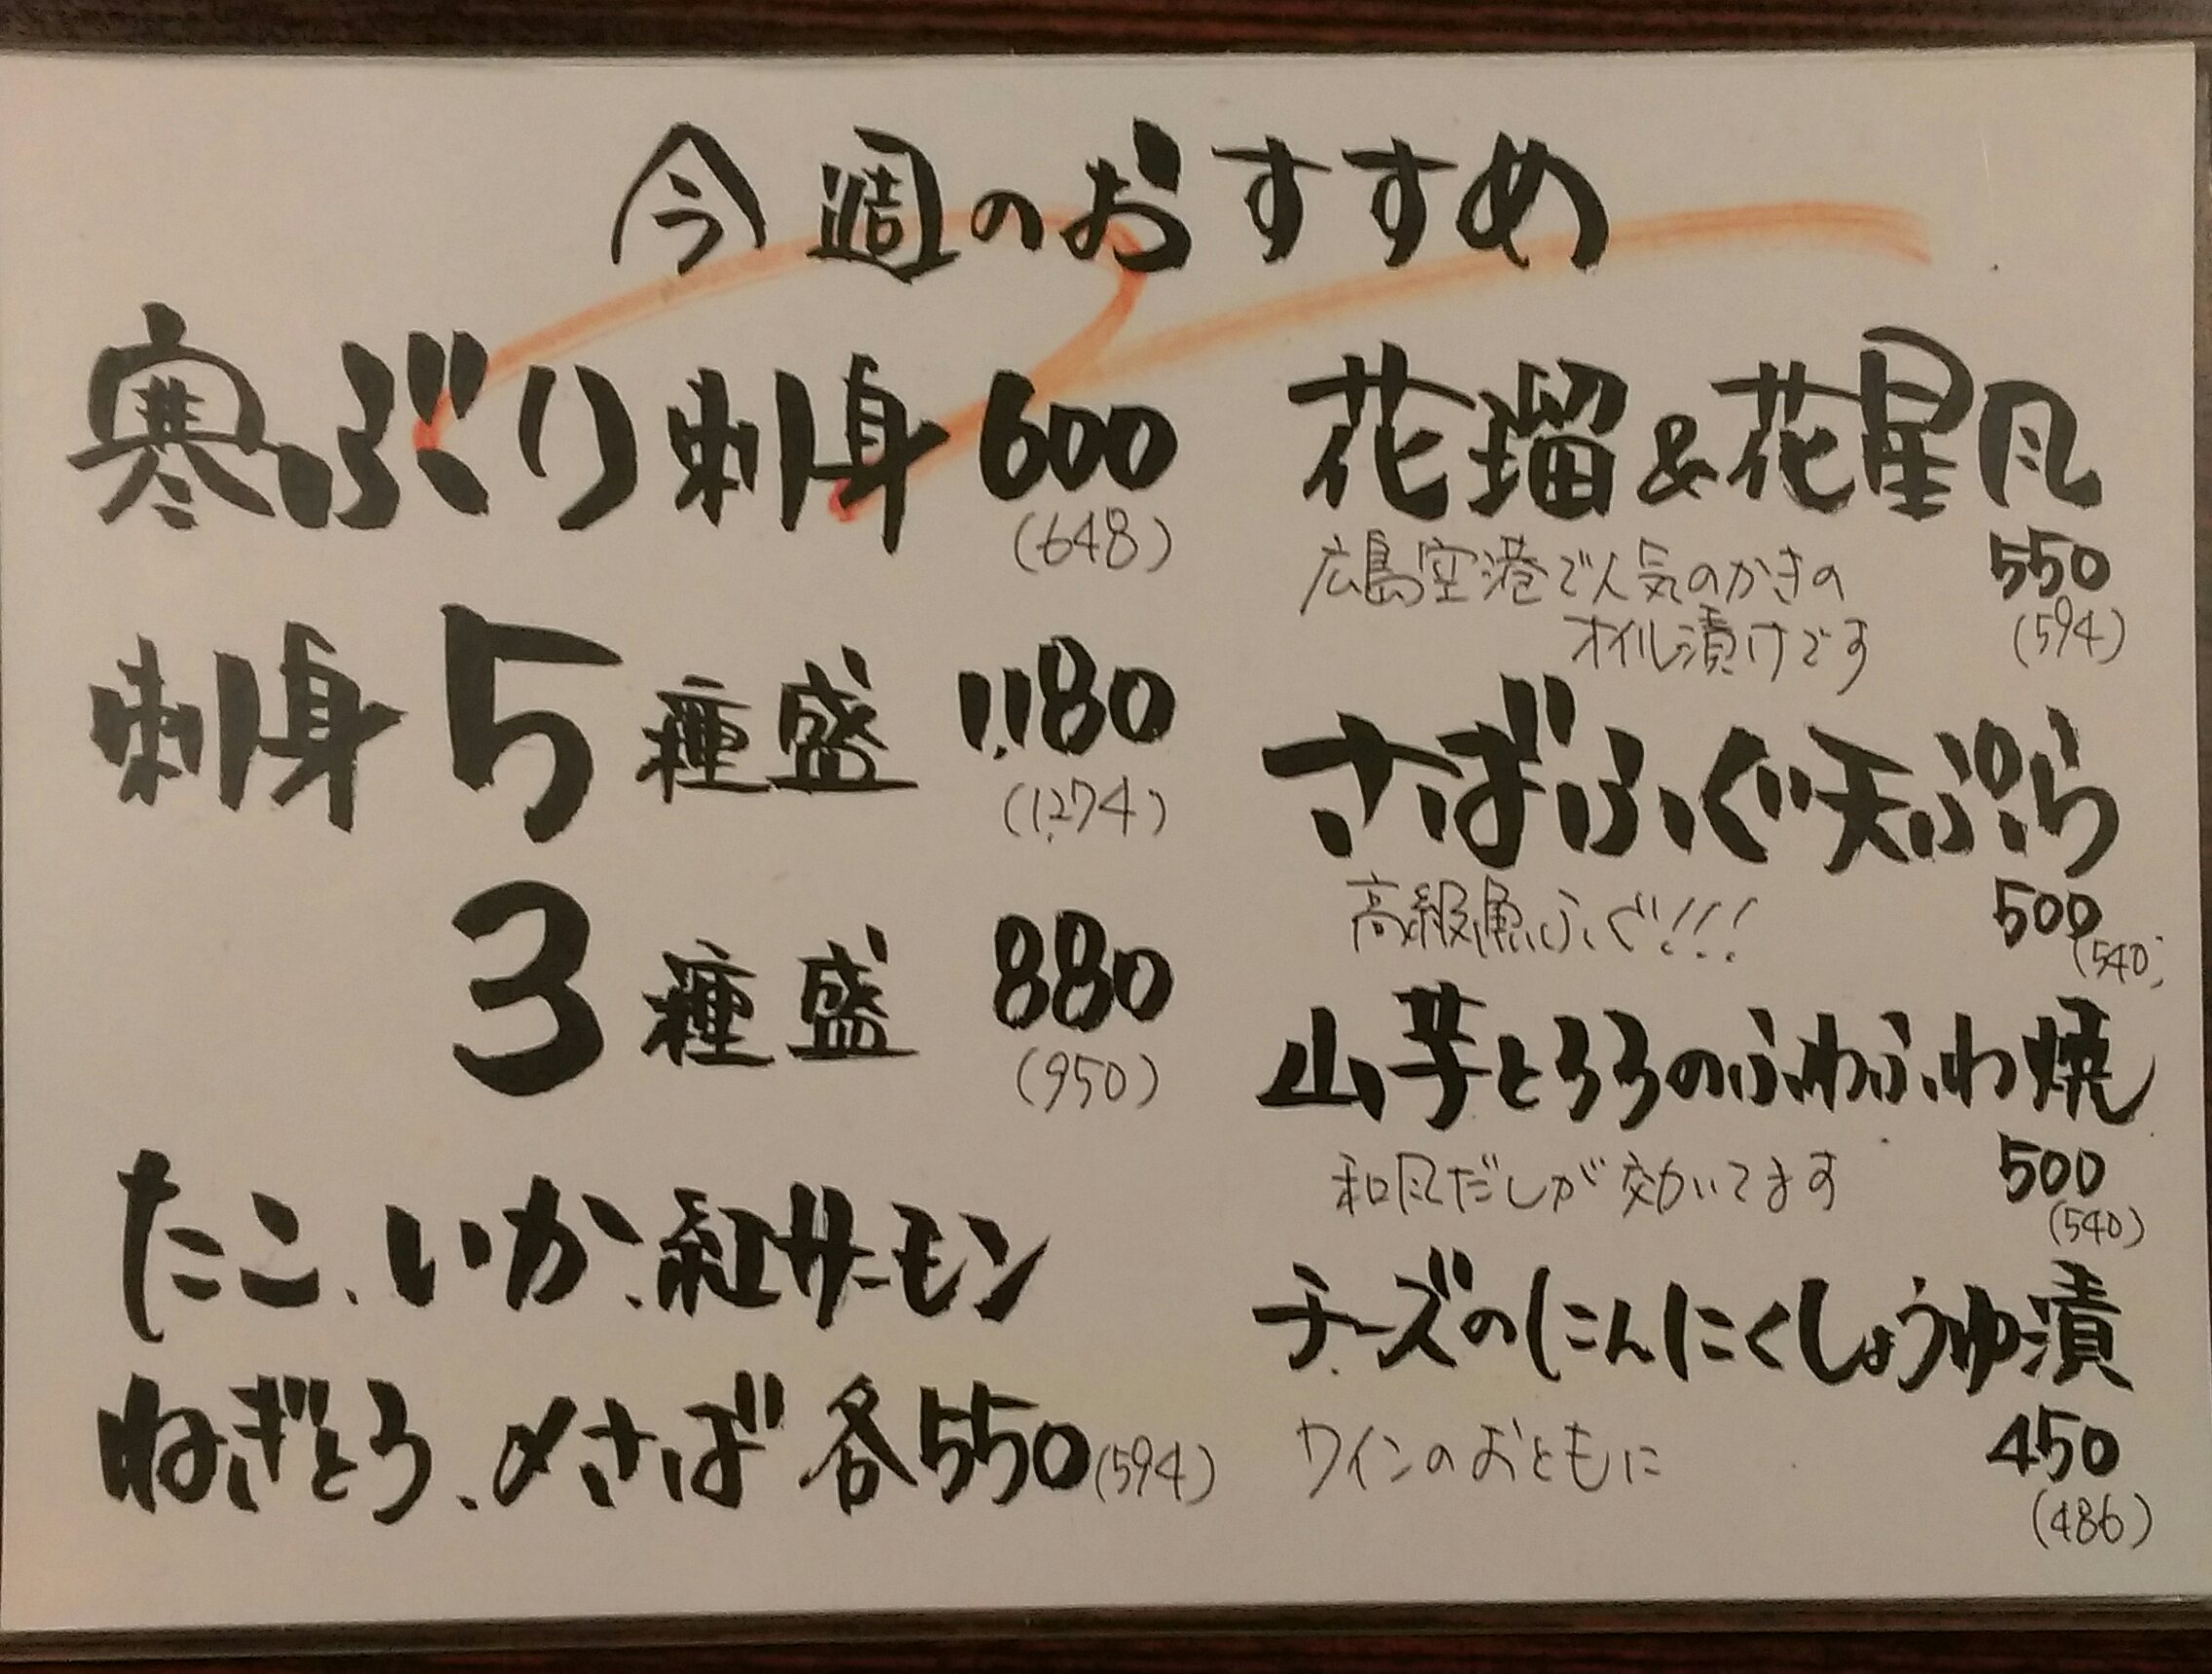 今週のおすすめ
寒ぶり刺身 600
(648)
刺身 5種盛 1,180
(1,274)
3種盛 880
(950)
たこ、いか、紅サーモン
ねぎとろ、〆さば 各550(594)
花瑠&花星風
550
広島空港で人気のかきの
オイル漬けです
(594)
さばふぐ天ぷら
高級魚ふぐ!!!
500
(540)
山芋とろろのふわふわ焼
和風だしが効いてます
500
(540)
チーズのにんにくしょうゆ漬
ワインのおともに
450
(486)